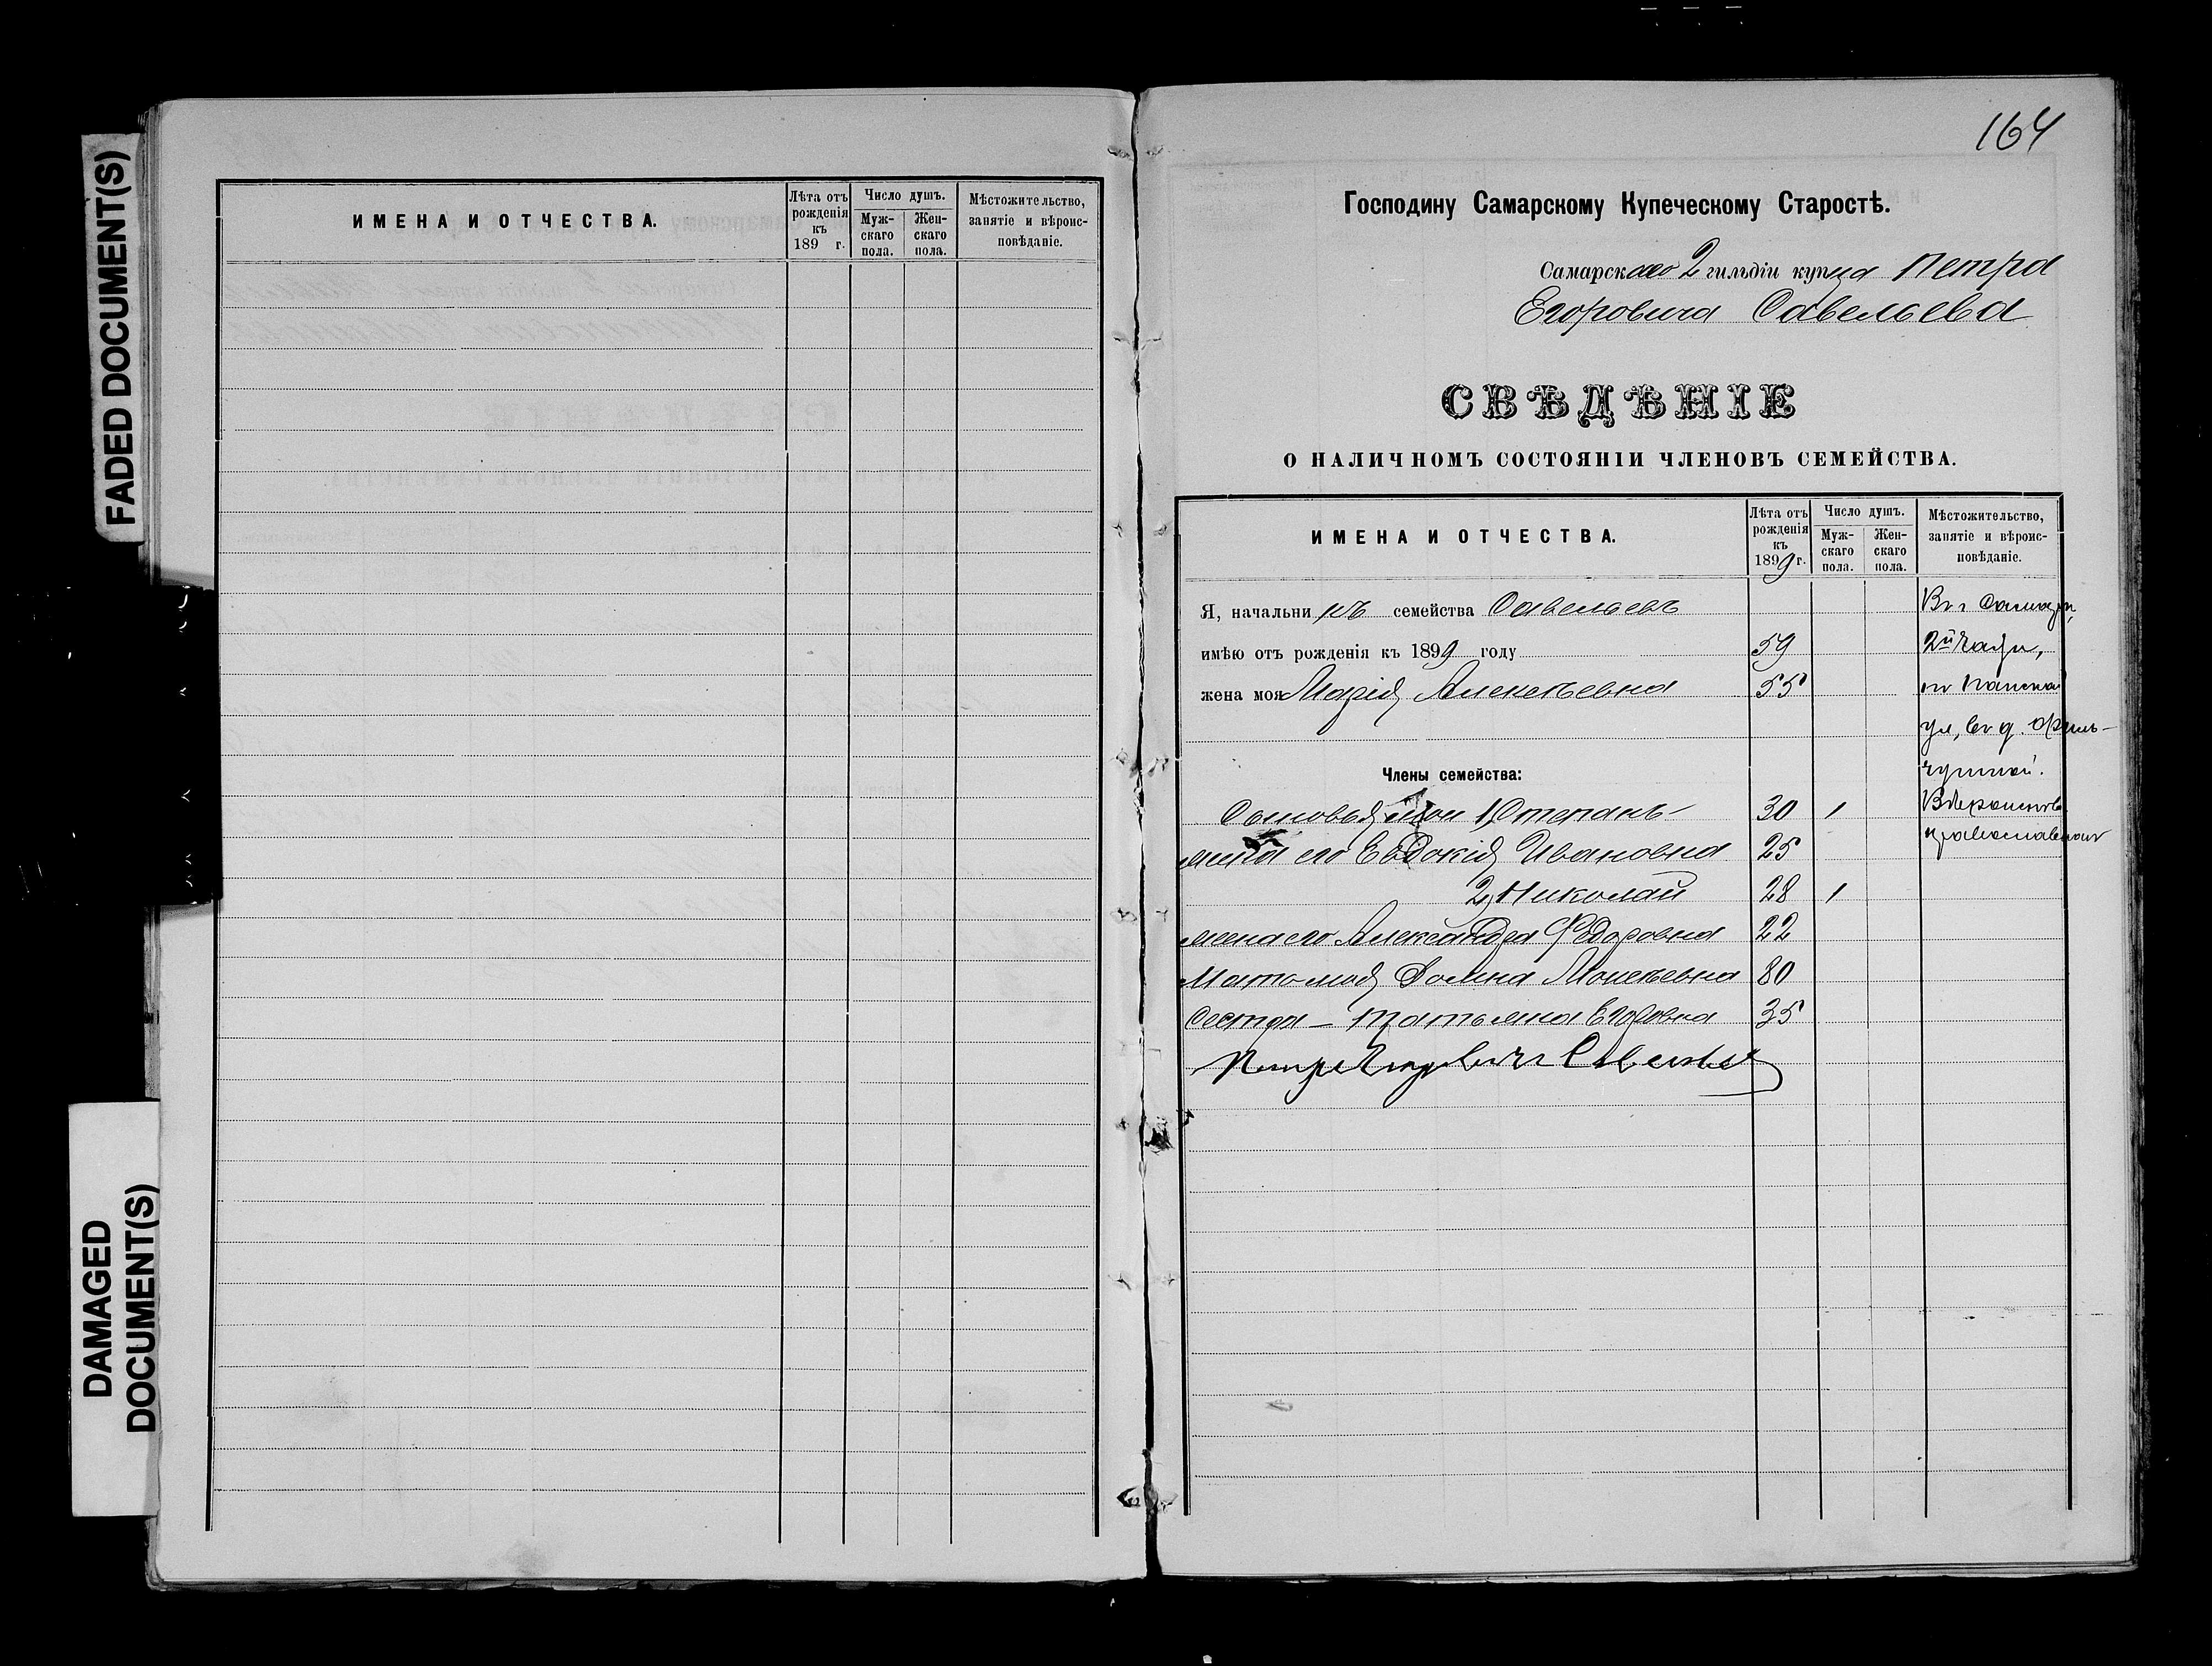 FADED DOCUMENT(S)
DAMAGED
DOCUMENT(S)
ИМЕНА И ОТЧЕСТВА.
Лѣта отъ рожденія къ 189 г.
Число душъ.
Мужскаго пола.
Женскаго пола.
Мѣстожительство, занятіе и вѣроисповѣданіе.
164
Господину Самарскому Купеческому Старостѣ.
Самарскаго 2 гильдіи купца Петра
Егоровича Савельева
СВѢДѢНІЕ
О НАЛИЧНОМЪ СОСТОЯНІИ ЧЛЕНОВЪ СЕМЕЙСТВА.
ИМЕНА И ОТЧЕСТВА.
Лѣта отъ рожденія къ 1899 г.
Число душъ.
Мужскаго пола.
Женскаго пола.
Мѣстожительство, занятіе и вѣроисповѣданіе.
Я, начальникъ семейства Савельевъ Въ г. Самарѣ,
имѣю отъ рожденія къ 1899 году 59 2й части,
жена моя Марія Алексѣевна 55 по Панской
ул, въ д.
Члены семейства:
Сыновья мои 1, Степанъ 30 1
жена его Евдокія Ивановна 25 православнаго
2, Николай 28 1
жена его Александра Ѳедоровна 22
Мать моя Домна Мокеевна 80
Сестра – Татьяна Егоровна 35
Петръ Егоровичъ Савельевъ